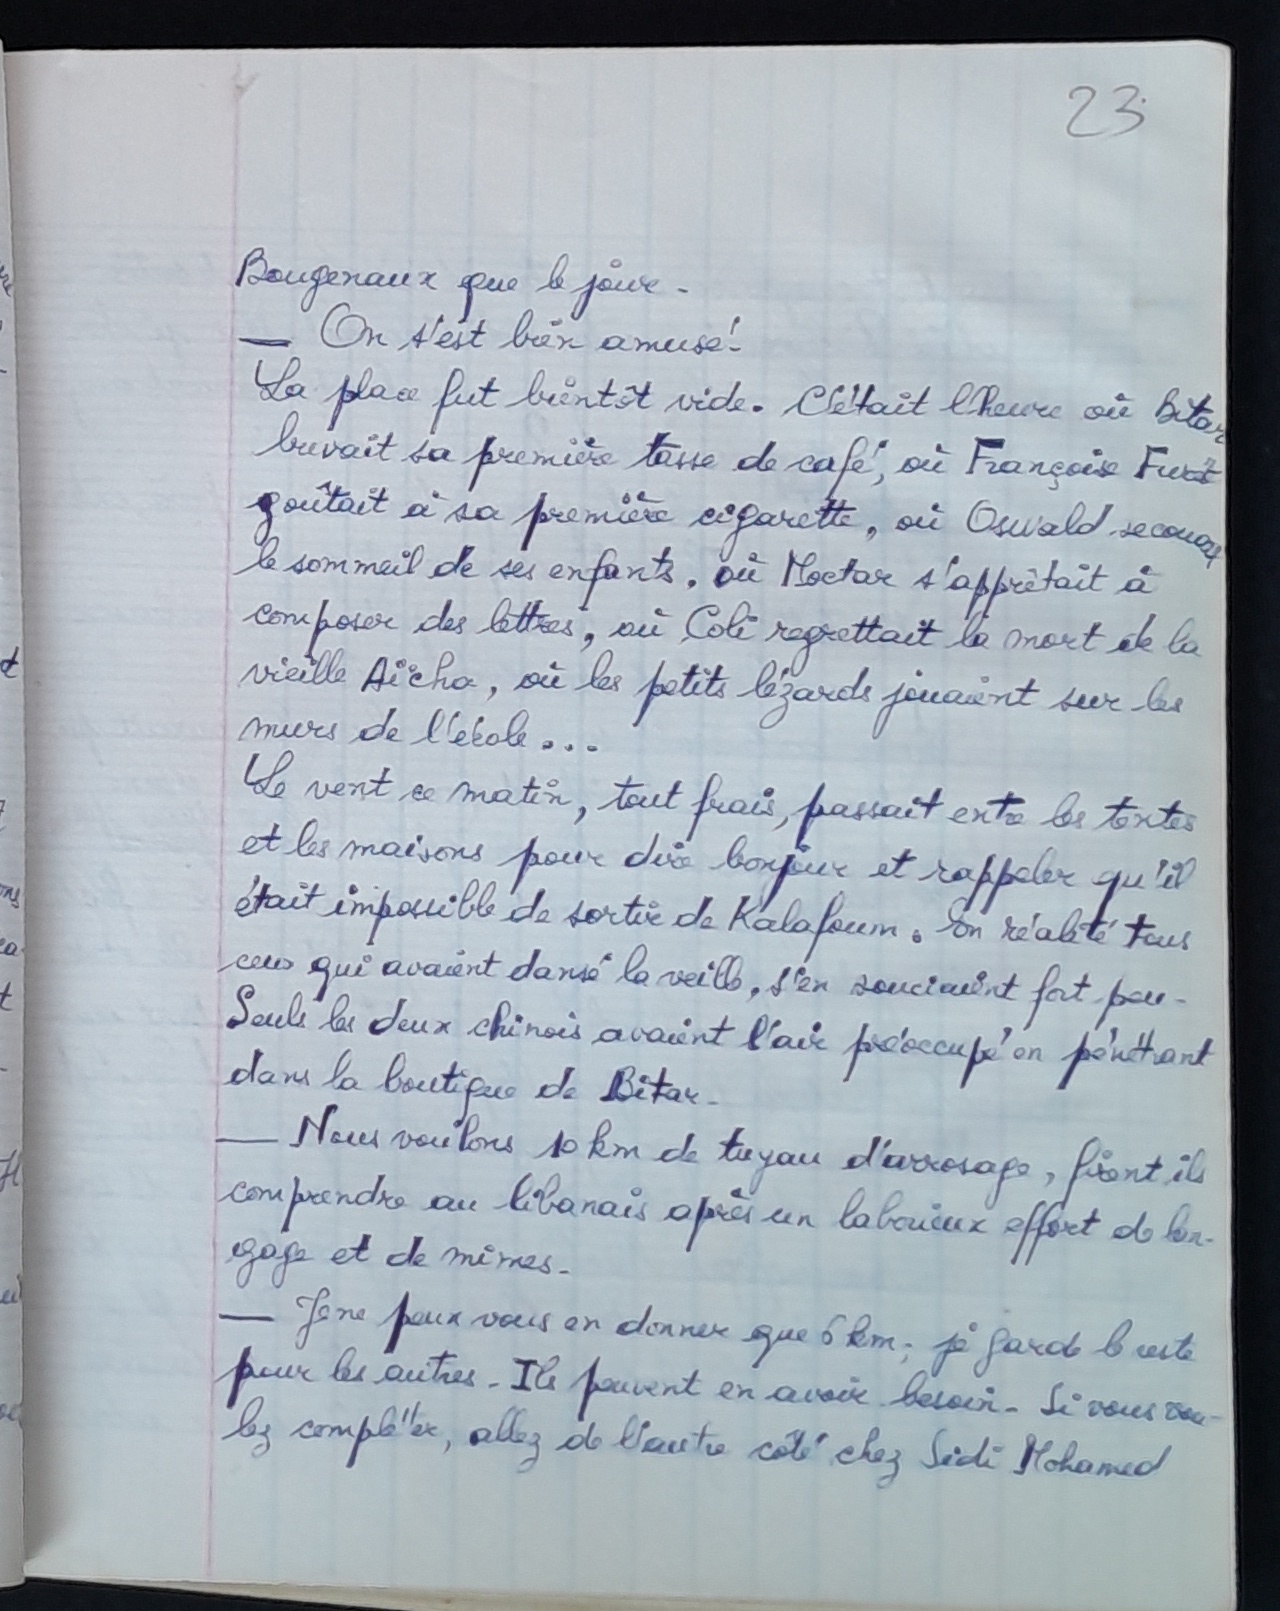 23
Bougenaux que le jour.
— On s'est bien amusé!
La place fut bientôt vide. C'était l'heure où Bitar
buvait sa première tasse de café, où Françoise Furst
goûtait à sa première cigarette, où Oswald secouait
le sommeil de ses enfants, où Moctar s'apprêtait à
composer des lettres, où Coli regrettait la mort de la
vieille Aïcha, où les petits lézards jouaient sur les
murs de l'école...
Le vent ce matin, tout frais, passait entre les tentes
et les maisons pour dire bonjour et rappeler qu'il
était impossible de sortir de Kalafoum. En réalité tous
ceux qui avaient dansé la veille, s'en souciaient fort peu.
Seuls les deux chinois avaient l'air préoccupé en pénétrant
dans la boutique de Bitar.
— Nous voulons 10 km de tuyau d'arrosage, firent ils
comprendre au libanais après un laborieux effort de lan-
gage et de mimes.
— Je ne peux vous en donner que 6 km; je garde le reste
pour les autres. Ils peuvent en avoir besoin. Si vous vou-
lez compléter, allez de l'autre côté chez Sidi Mohamed